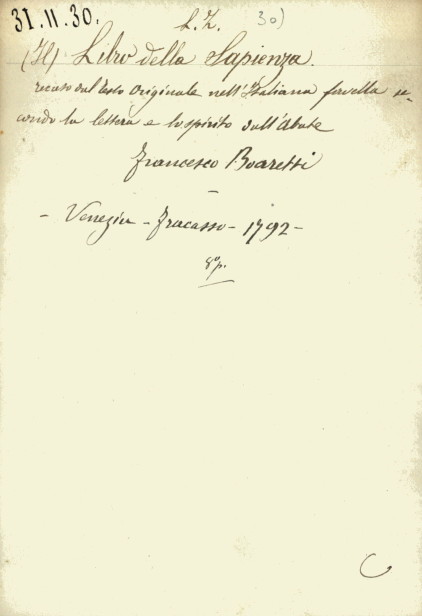 31.11.30. L.Z. 30)
(Il) Libro della Sapienza.
recato dal testo Originale nell'Italiana favella se-
condo la lettera e lo spirito dall'Abate
Francesco Boaretti
—
- Venezia - Fracasso - 1792 -
8° p.